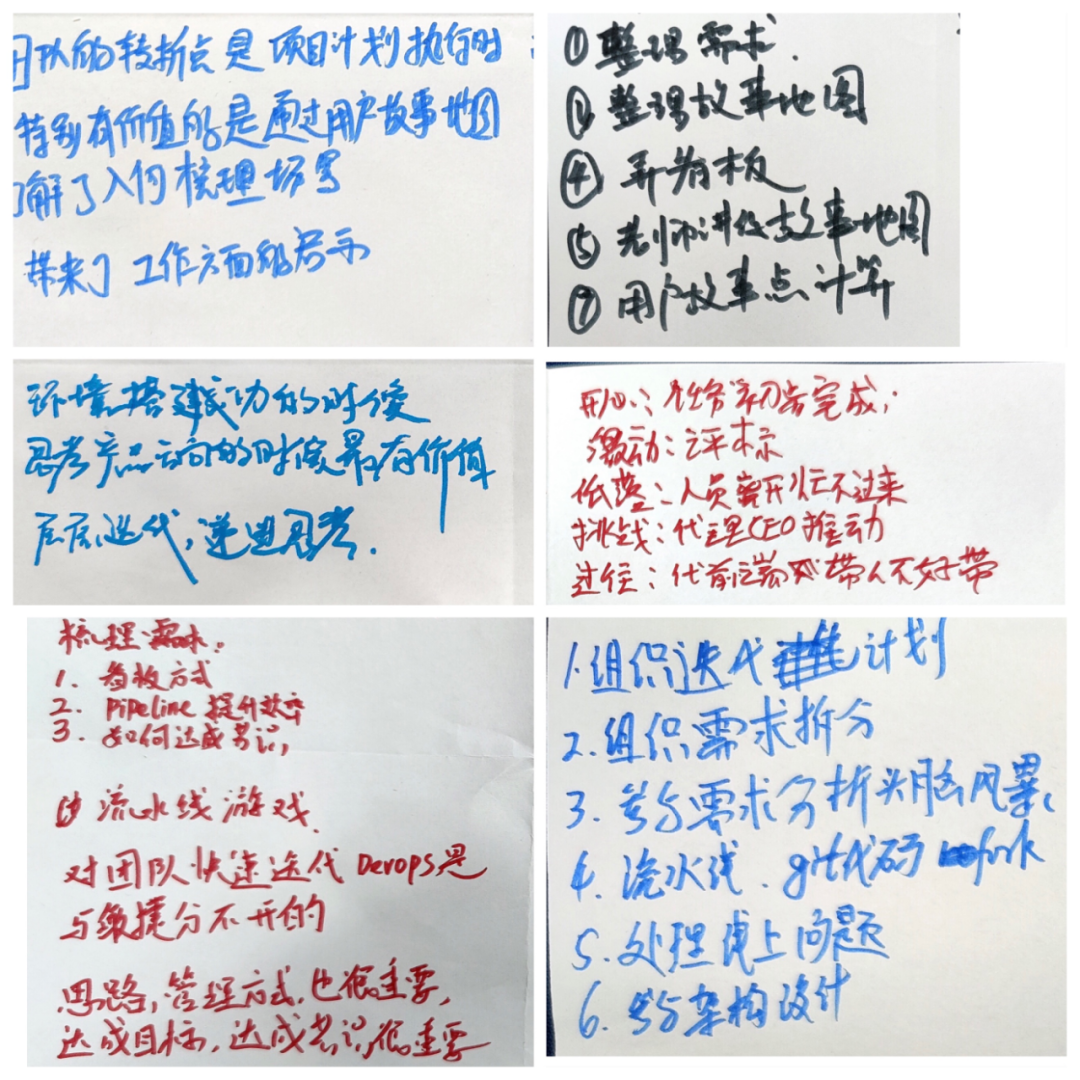 团队的转折点是项目计划执行时
特别有价值的是通过用户故事地图
了解了入何梳理场景
带来了工作方面的启示
①整理需求.
整理故事地图
④弄看板
⑤老师讲代故事地图
⑦用户故事点计算
环境搭建成功的时候
思考产品方向的时候最有价值
层层迭代,递进思考.
开心:任务初步完成;
激动:评标
低落:人员离开忙不过来
挑战:代理CEO推动
过往:代前端 带人不好带
梳理需求:
1. 看板方式
2. Pipeline 提升效率
3. 如何达成共识,
流水线游戏.
对团队快速迭代 Devops思
与敏捷分不开的
思路,管理方式.也很重要,
达成目标,达成共识,很重要
1.组织迭代 计划
2.组织需求拆分
3.参与需求分析头脑风暴.
4.流水线.git代码 fork
5.处理线上问题
6.参与架构设计